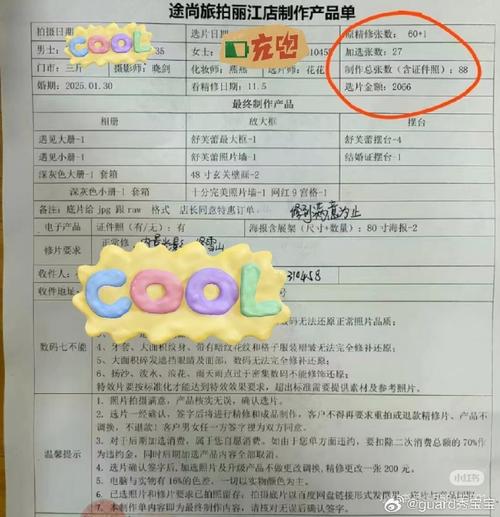 途尚旅拍丽江店制作产品单
拍摄日期 选片日期 原精修张数：60+1
男士： 35 女士： 10459 加选张数：27
门市：三片 摄影师：晓剑 化妆师：燕燕 选片师：花花 制作总张数（含证件照）：88
婚期：2025.01.30 看精修日期：11.5 选片金额：2066
最终制作产品
相册 放大框 摆台
遇见大册-1 舒芙蕾最大框-1 舒芙蕾摆台-4
遇见小册-1 舒芙蕾照片墙-1 结婚证摆台-1
深灰色大册-1 套箱 48寸玄关壁画-2
深灰色小册-1 套箱 十分完美照片墙-1 网红9宫格-1
备注：底片给 jpg 跟 raw 格式 店长同意特惠订单 修到满意为止
电子产品 证件照（有/无）：有 海报含展架（尺寸+数量）：80寸海报-2
修片要求 正常修 雪山
收件人 310458
收件地址
COOL
充饱
COOL
数码无法还原正常照片品质；
数码七不能
4、牙套、大面积纹身、带有暗纹花纹和格子服装褶皱无法完全修补还原；
5、大面积碎发遮挡眼睛及面部，数码无法完全修补还原；
6、扬沙、泼水、浪花、雨天雨点过于密集数码不能修饰还原；
特效片要按标准化才能达到特效效果要求，超出标准需要提供素材及参考照片。
温馨提示
1、照片拍摄满意，产品核实无误，确认选片。
2、选片一经确认，签字后将进行精修和成品制作，客户不得再要求重拍或退款精修片、产品不
调换，不退款！客户男女任一方签字视为双方同意。
3、对于后期加选消费，属于您自愿消费。如由于您单方面违约，要扣除二次消费总额的70%作
为违约金，同时后期加选产品内容全部取消。
4、选片确认签字后，加选照片及升级产品不做更改调换，精修更改一张 200 元。
5、电脑与实物有16%的色差，一切以实物颜色为主。
6、已选照片和修片要求已拍照留存；拍摄底片以百度网盘链接形式发
7、本制作单内容即为最终制作内容，请核对无误后确认签字。
小红书
@guard秀宝宝